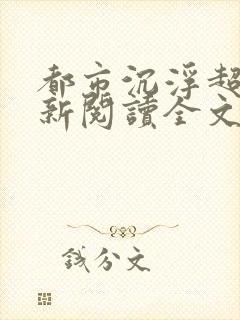 都市沉浮超
新閱讀全文
錢公文